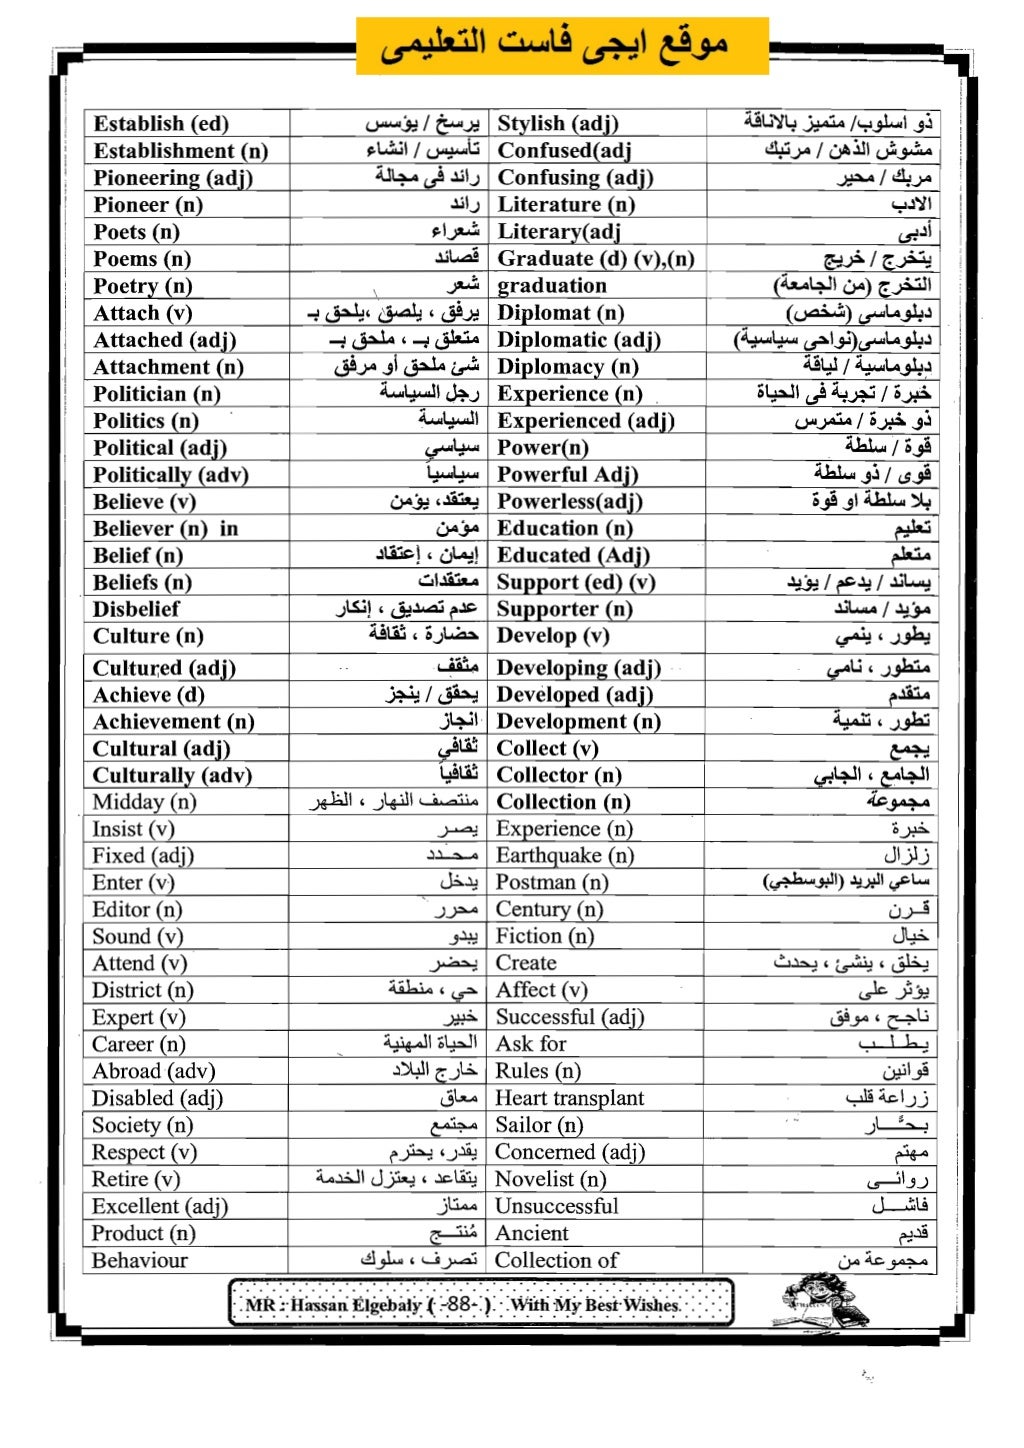 موقع ايجى فاست التعليمى
Establish (ed) يرسخ / يؤسس Stylish (adj) ذو اسلوب/ متميز بالاناقة
Establishment (n) تأسيس / انشاء Confused(adj مشوش الذهن / مرتبك
Pioneering (adj) رائد فى مجالة Confusing (adj) مربك / محير
Pioneer (n) رائد Literature (n) الادب
Poets (n) شعراء Literary(adj أدبى
Poems (n) قصائد Graduate (d) (v),(n) يتخرج / خريج
Poetry (n) شعر graduation التخرج (من الجامعة)
Attach (v) يرفق ، يلصق ،يلحق بـ Diplomat (n) دبلوماسى (شخص)
Attached (adj) متعلق بـ ، ملحق بـ Diplomatic (adj) دبلوماسى(نواحى سياسية)
Attachment (n) شئ ملحق أو مرفق Diplomacy (n) دبلوماسية / لياقة
Politician (n) رجل السياسة Experience (n) خبرة / تجربة فى الحياة
Politics (n) السياسة Experienced (adj) ذو خبرة / متمرس
Political (adj) سياسي Power(n) قوة / سلطة
Politically (adv) سياسياً Powerful Adj) قوى / ذو سلطة
Believe (v) يعتقد، يؤمن Powerless(adj) بلا سلطة او قوة
Believer (n) in مؤمن Education (n) تعليم
Belief (n) إيمان ، إعتقاد Educated (Adj) متعلم
Beliefs (n) معتقدات Support (ed) (v) يساند / يدعم / يؤيد
Disbelief عدم تصديق ، إنكار Supporter (n) مؤيد / مساند
Culture (n) حضارة ، ثقافة Develop (v) يطور ، ينمي
Cultured (adj) مثقف Developing (adj) متطور ، نامي
Achieve (d) يحقق / ينجز Developed (adj) متقدم
Achievement (n) انجاز Development (n) تطور ، تنمية
Cultural (adj) ثقافي Collect (v) يجمع
Culturally (adv) ثقافياً Collector (n) الجامع ، الجابي
Midday (n) منتصف النهار ، الظهر Collection (n) مجموعة
Insist (v) يصـر Experience (n) خبرة
Fixed (adj) محـدد Earthquake (n) زلزال
Enter (v) يدخل Postman (n) ساعي البريد (البوسطجي)
Editor (n) محرر Century (n) قـرن
Sound (v) يبدو Fiction (n) خيال
Attend (v) يحضر Create يخلق ، ينشئ ، يحدث
District (n) حي ، منطقة Affect (v) يؤثر على
Expert (v) خبير Successful (adj) ناجح ، موفق
Career (n) الحياة المهنية Ask for يـطـلـب
Abroad (adv) خارج البلاد Rules (n) قوانين
Disabled (adj) معاق Heart transplant زراعة قلب
Society (n) مجتمع Sailor (n) بـحـَّـار
Respect (v) يقدر، يحترم Concerned (adj) مهتم
Retire (v) يتقاعد ، يعتزل الخدمة Novelist (n) روائـى
Excellent (adj) ممتاز Unsuccessful فاشـل
Product (n) مُنتـج Ancient قديم
Behaviour تصرف ، سلوك Collection of مجموعة من
MR : Hassan Elgebaly ( -88- ) With My Best Wishes.